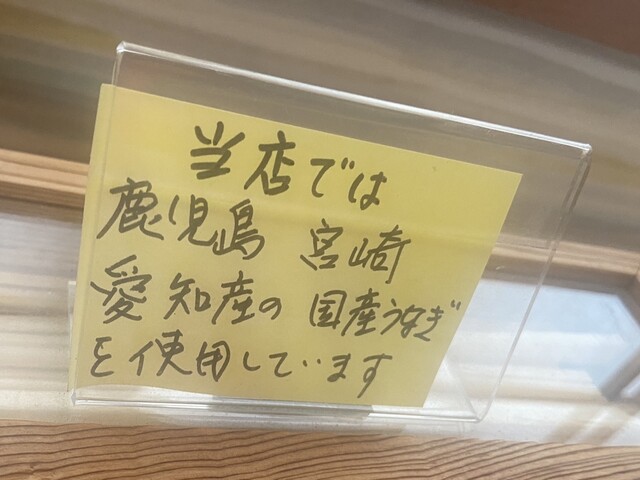 当店では
鹿児島 宮崎
愛知産の 国産うなぎ
を使用しています